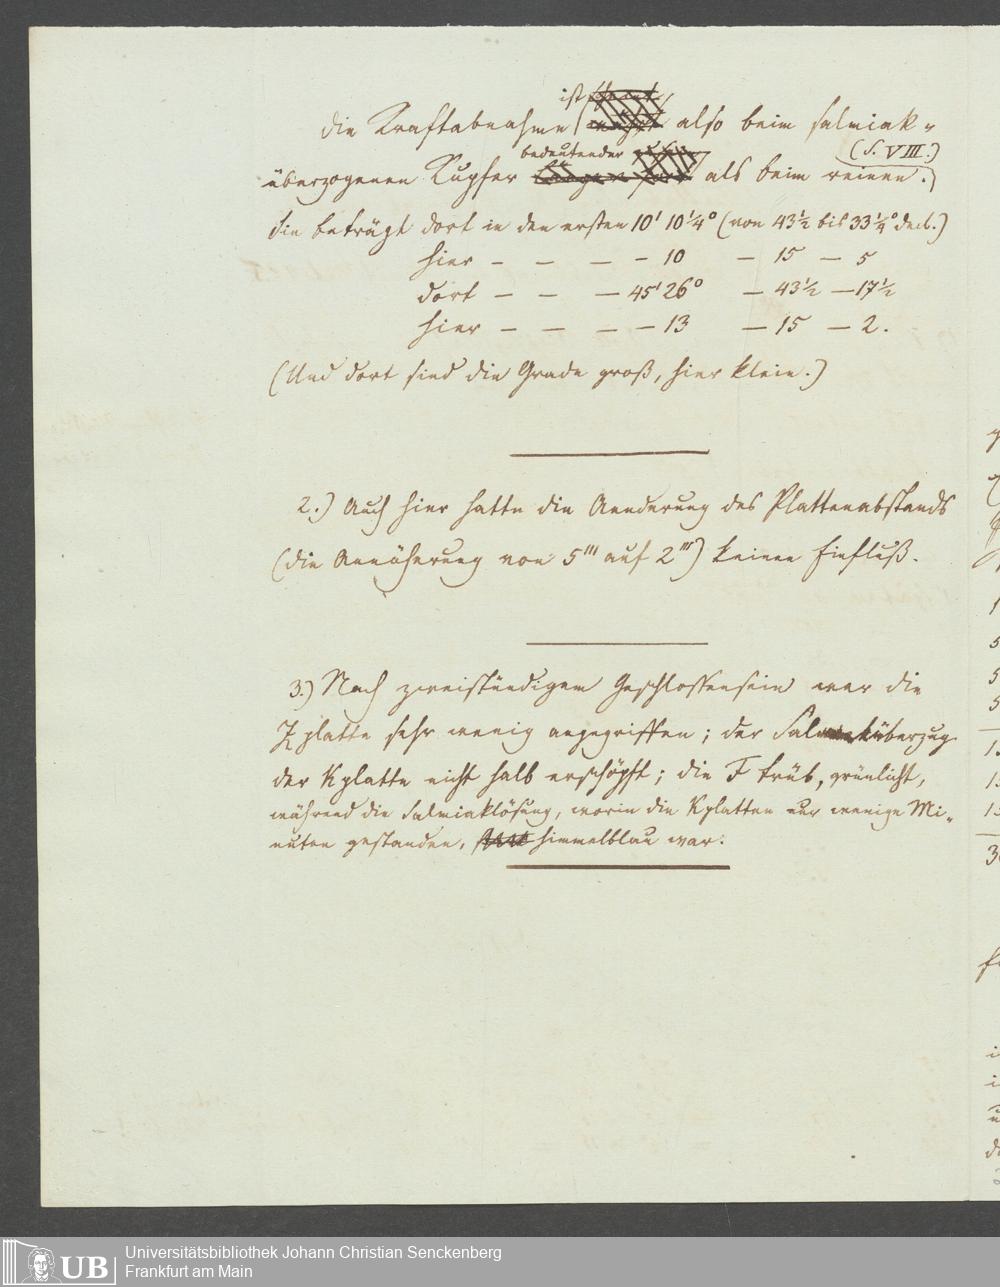 die Kraftabnahme ist also beim salmiak-
überzogenen Kupfer bedeutender als beim reinen. (S. VIII.)
Sie beträgt dort in den ersten 10' 10¼° (von 43½ bis 33¼° decl.)
hier – – – – 10 – 15 – 5
dort – – – 45' 26° – 43½ – 17½
hier – – – – 13 – 15 – 2.
(Und dort sind die Grade groß, hier klein.)
2.) Auch hier hatte die Aenderung des Plattenabstands
(die Annäherung von 5''' auf 2''') keinen Einfluß.
3.) Nach zweistündigem Geschlossensein war die
Z platte sehr wenig angegriffen; der Salmiaküberzug
der K platte nicht halb erschöpft; die F trüb, grünlicht,
während die Salmiaklösung, worin die K platten nur wenige Mi-
nuten gestanden, himmelblau war.
UB Universitätsbibliothek Johann Christian Senckenberg
Frankfurt am Main